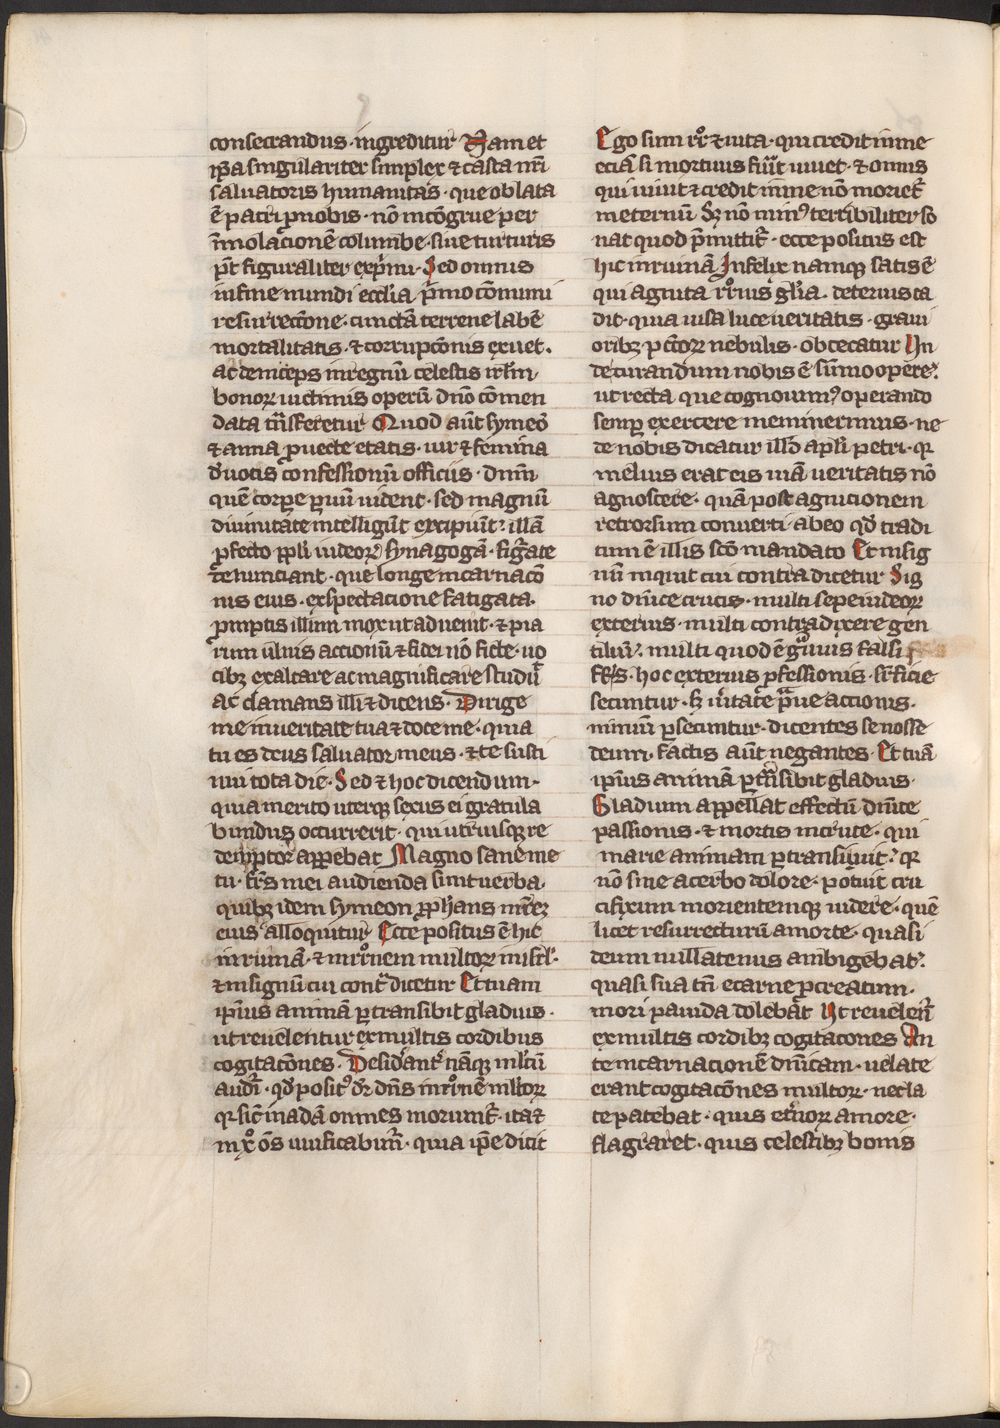 consecrandus · ingreditur Nam et
ip̄a singulariter simplex ⁊ casta nr̄i
saluatoris humanitas · que oblata
ē patri ꝓ nobis · nō incōgrue per
īmolacionē columbe · siue turturis
pōt figuraliter exp̄mi · Sed omnis
in fine mundi eccl̄ia p̄mo cōmuni
resurreccōne · cunctā terrene labē
mortalitatis · ⁊ corrupcōnis exuet ·
ac deinceps in regnū celestis ierl̄m ·
bonoꝝ uictimis operū dn̄o cōmen
data trāsferetur Quod aūt symeō
⁊ anna ꝓuecte etatis · uir ⁊ femina
deuotis confessionū officiis · dn̄m
quē corꝑe ꝑuū uident · sed magnū
diuinitate intelligūt excipiūt · illā
ꝓfecto ppl̄i iudeoꝝ synagogā · figurate
denunciant · que longe incarnacō
nis eius · expectacione fatigata ·
promptis illum mox ut aduenit · ⁊ pia
rum ulnis accionū ⁊ fidei nō ficte · uo
cibꝫ exaltare ac magnificare studuit
ac clamans illi ⁊ dicens · Dirige
me in ueritate tua ⁊ doce me · quia
tu es deus saluator meus · ⁊ te susti
nui tota die · Sed ⁊ hoc dicendum ·
quia merito uterqꝫ sexus ei gratula
bundus occurrerit · qui utriusqꝫ re
demptor apparebat Magno sane me
tu · fr̄s mei audienda sunt uerba ·
quibꝫ idem symeon ꝓphans matrē
eius alloquitur Ecce positus ē hic
in ruinā · ⁊ in resurrectionem multoꝝ in isrl̄ ·
⁊ in signū cui contradicetur Et tuam
ip̄ius animā ꝑtransibit gladius ·
ut reuelentur ex multis cordibus
cogitacōnes · Desiderantur nāqꝫ multū
audiri · qd̓ posit⁹ dr̄ dn̄s in resurrectionē multoꝝ
qꝛ sicut in adā omnes moriunt̄ · ita ⁊
in xp̄o om̄s uiuificabunt̄ · quia ip̄e dicit
Ego sum resurrectio ⁊ uita · qui credit in me
eciā si mortuus fuerit uiuet · ⁊ omnis
qui uiuit ⁊ credit in me nō moriet̄
in eternū Sꝫ nō min⁹ terribiliter so
nat quod p̄mittit̄ · ecce positus est
hic in ruinā Infelix namqꝫ satis ē
qui agnita resurrectionis gl̄ia · deterius ca
dit · quia uisa luce ueritatis · graui
oribꝫ peccatoꝝ nebulis · obcecatur Un
de curandum nobis ē sūmo opere ·
ut recta que cognouim⁹ operando
semꝑ exercere meminerimus · ne
de nobis dicatur illud apl̄i petri · qꝛ
melius erat eis uiā ueritatis nō
agnoscere · quā post agnitionem
retrorsum conuerti ab eo qd̓ tradi
tum ē illis scō mandato Et in sig
nū inquit cui contradicetur Sig
no dn̄ice crucis · multi sepe iudeoꝝ
exterius · multi contradixere gen
tiliū · multi quod ē grauius falsi
fr̄s · hoc exterius ꝓfessionis · superficie
secuntur · sꝫ ueritate praue accionis ·
nimiū ꝑsecuntur · dicentes se nosse
deum · factis aūt negantes · Et tuā
ip̄ius animā ꝑtransibit gladius ·
Gladium appellat effectū dn̄ice
passionis · ⁊ mortis in cruce · qui
marie animam ꝑtransiuit · qꝛ
nō sine acerbo dolore · potuit cru
cifixum morientemqꝫ uidere · quē
licet resurrecturū a morte · quasi
deum nullatenus ambigebat ·
quasi sua tn̄ e carne ꝓcreatum ·
mori pauida dolebat Ut reuelent̄
ex multis cordibꝫ cogitacones An
te incarnacionē dn̄icam · uelate
erant cogitacōnes multoꝝ · nec la
te patebat · quis eternoꝝ amore ·
flagraret · quis celestibꝫ bonis